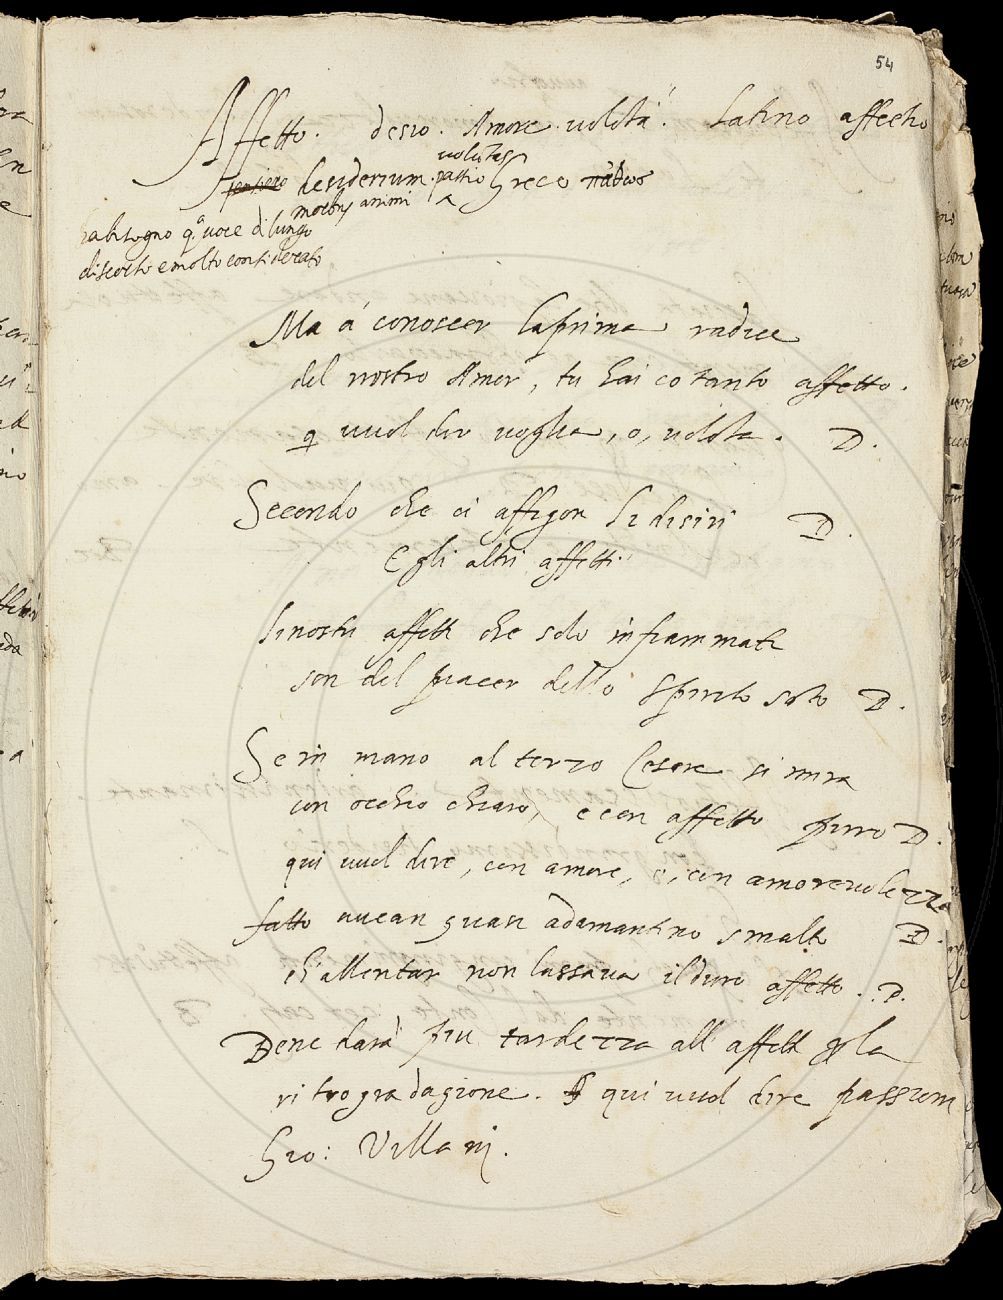 54
Affetto. desio. Amore. volõtà. Latino affectio
desiderium. passio voluntas Greco πάθος
motus animi
ha bisogno q.a voce di lungo
discorso e molto considerato
Ma á conoscer la prima radice
del nostro Amor, tu hai cotanto affetto.
q vuol dir voglia, o, volõta. D.
Secondo che ci affigon li disiri D.
E gli altri affetti
Li nostri affetti che solo infiammati
son del piacer dello Spirito sãto D.
Se in mano al terzo Cesare si mira
con occhio chiaro, e con affetto puro D.
qui vuol dire, con amore, ò, con amorevolezza
fatto avean quasi adamantino smalto D.
ch'allentar non lassava il duro affetto. D.
Bene darà piu tardezza all' affetti p la
ritrogradagione. qui vuol dire passioni
Gio: Villani.